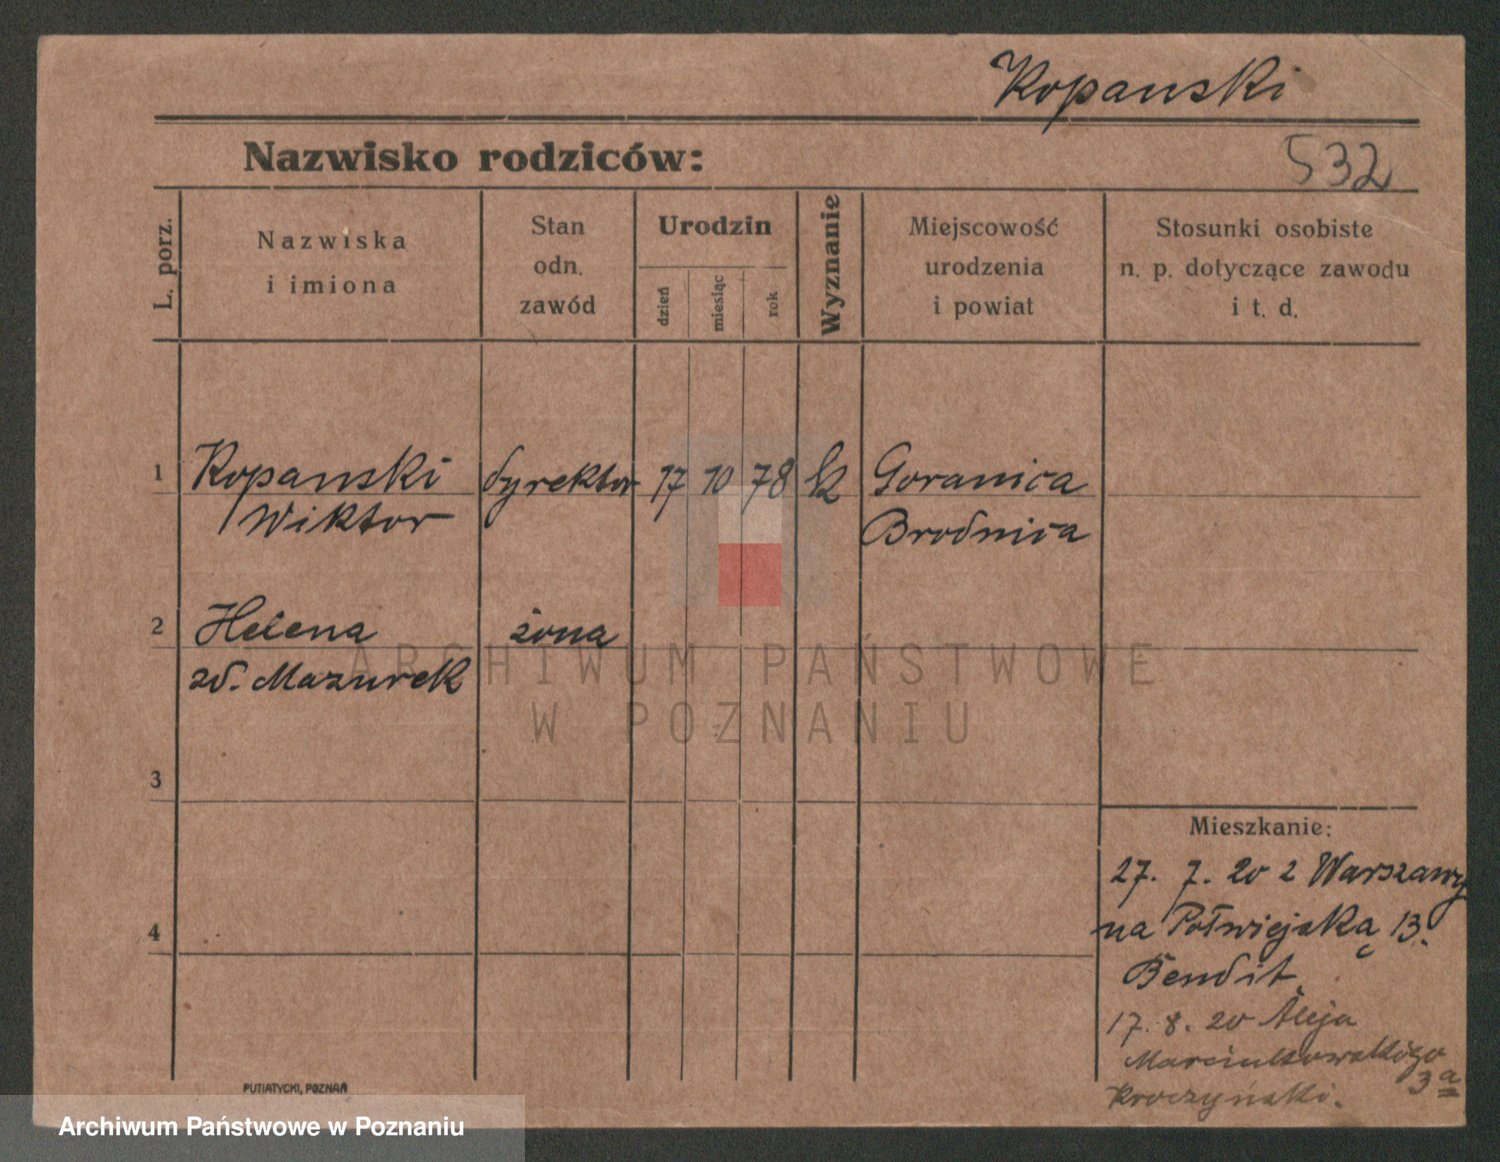 Kopanski
Nazwisko rodziców:
532
L. porz.
Nazwiska
i imiona
Stan
odn.
zawód
Urodzin
dzień
miesiąc
rok
Wyznanie
Miejscowość
urodzenia
i powiat
Stosunki osobiste
n. p. dotyczące zawodu
i t. d.
1 Kopanski dyrektor 17 10 78 k Goranica
Wiktor Brodnica
2 Helena żona
zd. Mazurek
ARCHIWUM PAŃSTWOWE
W POZNANIU
3
Mieszkanie:
27. 7. 20 z Warszawy
na Półwiejską 13.
4
Bendit
17. 8. 20 Aleja
Marcinkowskiego
3a
Kroczyński.
PUTIATYCKI, POZNAŃ
Archiwum Państwowe w Poznaniu